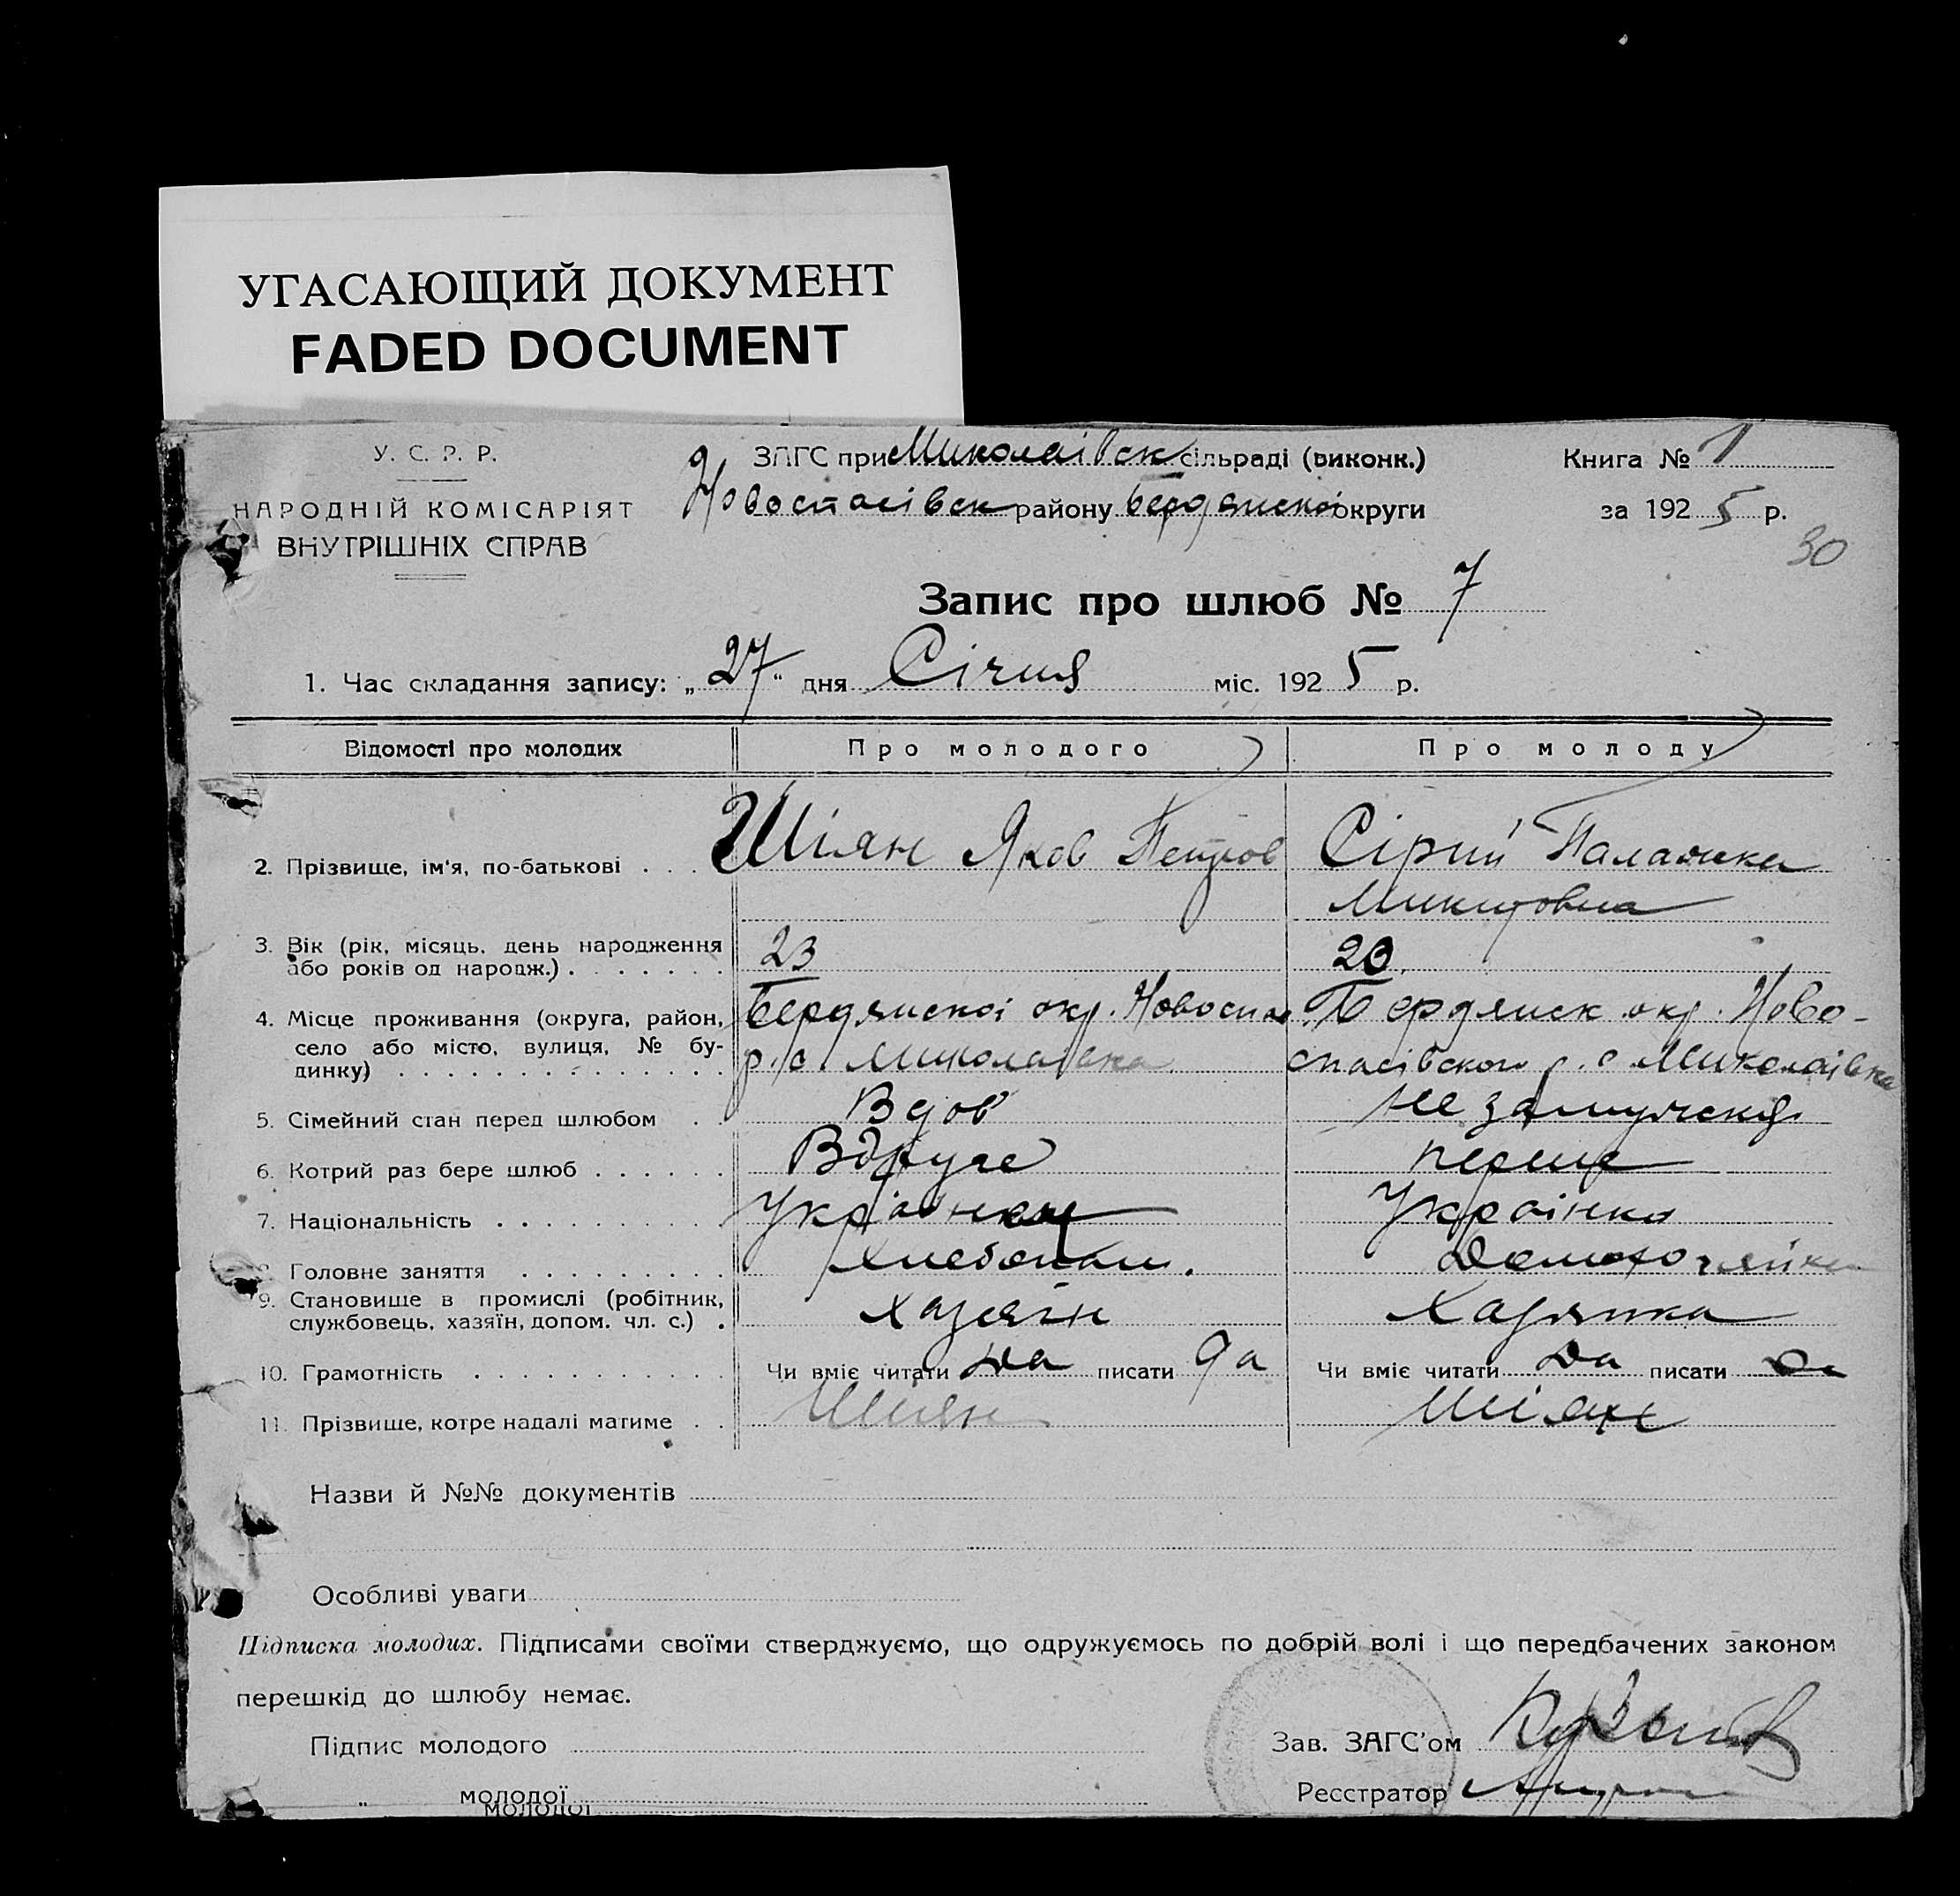 УГАСАЮЩИЙ ДОКУМЕНТ
FADED DOCUMENT
У. С. Р. Р.
НАРОДНІЙ КОМІСАРІЯТ
ВНУТРІШНІХ СПРАВ
ЗАГС при Миколаівск сільраді (виконк.)
Новоспасівск району Бердянскоі округи
Книга № 1
за 1925 р.
30
Запис про шлюб № 7
1. Час складання запису: „27“ дня Січня міс. 1925 р.
Відомості про молодих Про молодого Про молоду
2. Прізвище, ім'я, по-батькові . . . Шіян Яков Петров Сірий Палажка
Микитовна
3. Вік (рік, місяць, день народження
або років од народж.) . . . . . . . 23 20
4. Місце проживання (округа, район, Бердянскоі окр. Новоспас Бердянск окр. Ново-
село або місто, вулиця, № бу- р. с Миколаівка спасівского р. с Миколаівка
динку) . . . . . . . . . . . . . .
5. Сімейний стан перед шлюбом . . Вдов Не замужская
6. Котрий раз бере шлюб . . . . . . Вдруге перше
7. Національність . . . . . . . . . Українец Українка
8. Головне заняття . . . . . . . . . Хлебопаш. Домохозяйка
9. Становище в промислі (робітник,
службовець, хазяїн, допом. чл. с.) . Хазяїн Хазяйка
10. Грамотність . . . . . . . . . . . Чи вміє читати Да писати Да Чи вміє читати Да писати Да
11. Прізвище, котре надалі матиме . . Шиян Шіян
Назви й №№ документів
Особливі уваги
Підписка молодих. Підписами своїми стверджуємо, що одружуємось по добрій волі і що передбачених законом
перешкід до шлюбу немає.
Підпис молодого
Зав. ЗАГС'ом
„ молодої
Реєстратор
молодої